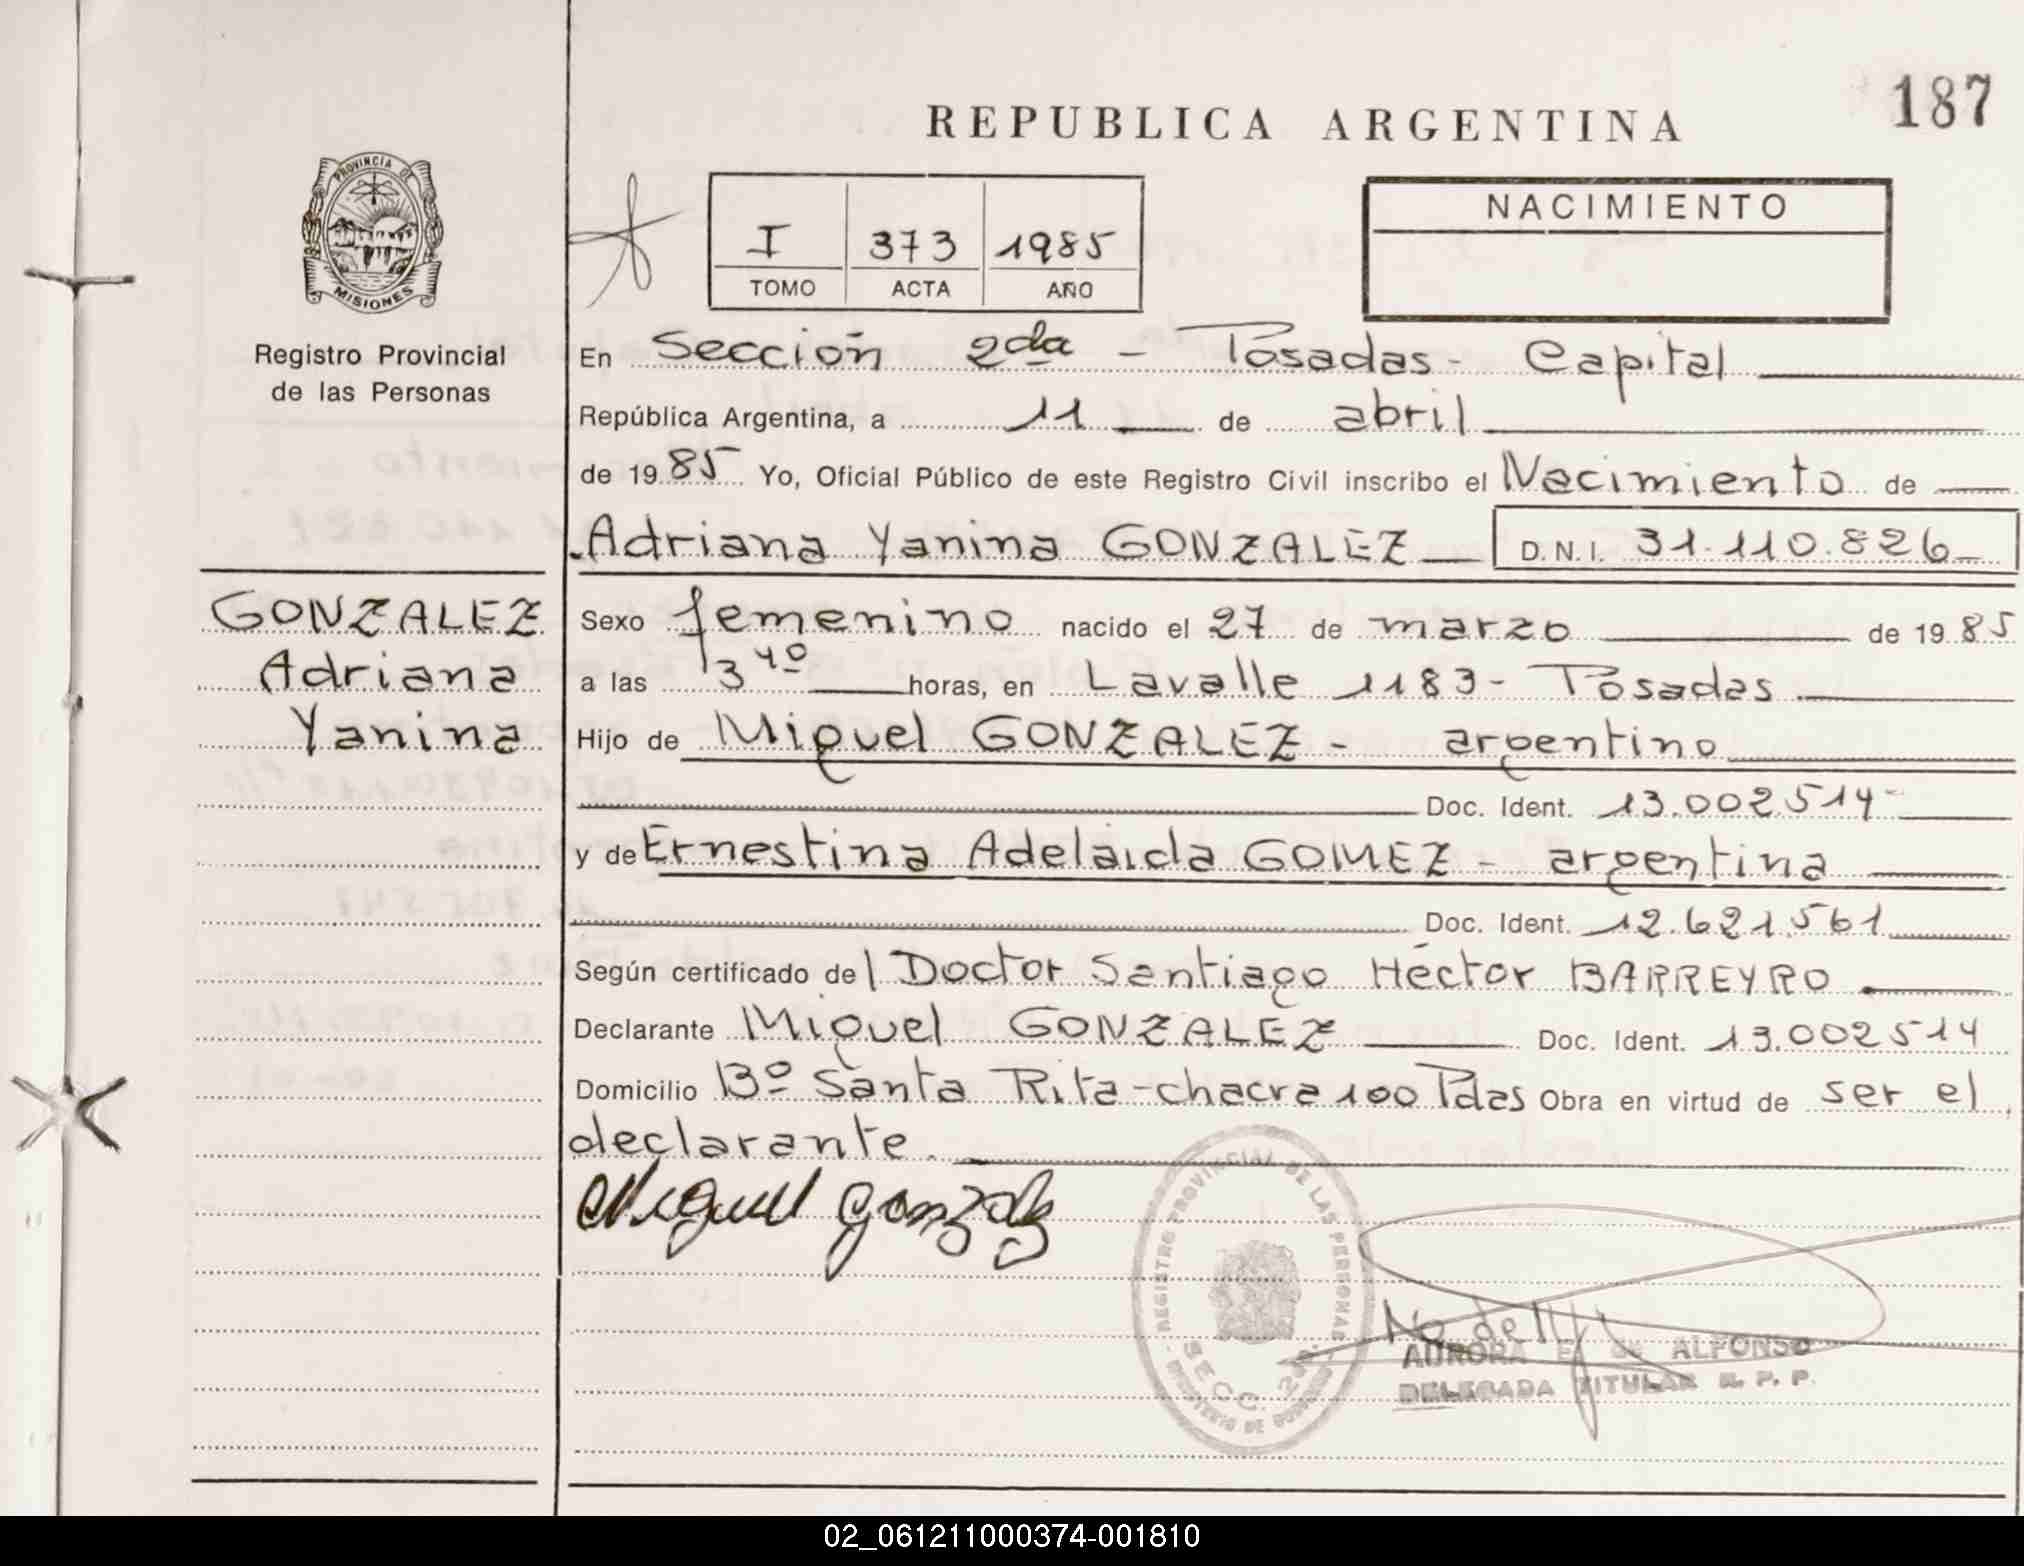 187
REPUBLICA ARGENTINA
PROVINCIA DE
MISIONES
Registro Provincial
de las Personas
I 373 1985
TOMO ACTA AÑO
NACIMIENTO
En Sección 2da - Posadas - Capital
República Argentina, a 11 de abril
de 1985 Yo, Oficial Público de este Registro Civil inscribo el Nacimiento de
Adriana Yanina GONZALEZ D.N.I. 31.110.826
GONZALEZ
Adriana
Yanina
Sexo femenino nacido el 27 de marzo de 1985
a las 3 40 horas, en Lavalle 1183 - Posadas
Hijo de Miguel GONZALEZ - argentino
Doc. Ident. 13.002514
y de Ernestina Adelaida GOMEZ - argentina
Doc. Ident. 12.621.561
Según certificado del Doctor Santiago Héctor BARREYRO
Declarante Miguel GONZALEZ Doc. Ident. 13.002514
Domicilio Bº Santa Rita - chacra 100 Pdas Obra en virtud de ser el
declarante.
Miguel Gonzalez
REGISTRO PROVINCIAL DE LAS PERSONAS
SECC. 2da.
MINISTERIO DE GOBIERNO
AURORA de ALFONSO
DELEGADA TITULAR R. P. P.
02_061211000374-001810